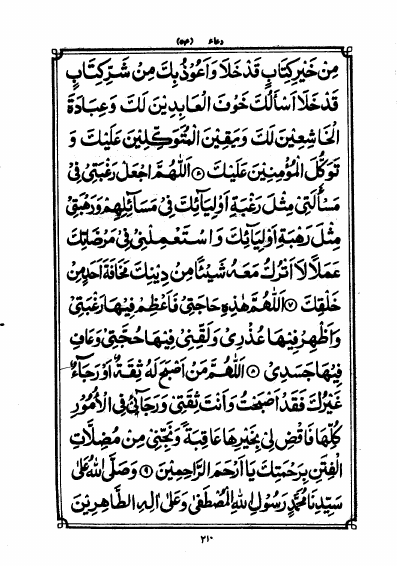 دعاء (٥٤)
مِنْ خَيْرِ كِتَابٍ قَدْ خَلَا وَاَعُوْذُ بِكَ مِنْ شَرِّ كِتَابٍ
قَدْ خَلَا اَسْاَلُكَ خَوْفَ الْعَابِدِيْنَ لَكَ وَعِبَادَةَ
الْخَاشِعِيْنَ لَكَ وَيَقِيْنَ الْمُتَوَكِّلِيْنَ عَلَيْكَ وَ
تَوَكُّلَ الْمُؤْمِنِيْنَ عَلَيْكَ ۝ اَللّٰهُمَّ اجْعَلْ رَغْبَتِيْ فِيْ
مَسْاَلَتِيْ مِثْلَ رَغْبَةِ اَوْلِيَآئِكَ فِيْ مَسَآئِلِهِمْ وَرَهْبَتِيْ
مِثْلَ رَهْبَةِ اَوْلِيَآئِكَ وَاسْتَعْمِلْنِيْ فِيْ مَرْضَاتِكَ
عَمَلًا لَا اَتْرُكُ مَعَهُ شَيْئًا مِنْ دِيْنِكَ مَخَافَةَ اَحَدٍ مِنْ
خَلْقِكَ ۝٧ اَللّٰهُمَّ هٰذِهٖ حَاجَتِيْ فَاَعْظِمْ فِيْهَا رَغْبَتِيْ
وَاَظْهِرْ فِيْهَا عُذْرِيْ وَلَقِّنِيْ فِيْهَا حُجَّتِيْ وَعَافِ
فِيْهَا جَسَدِيْ ۝ اَللّٰهُمَّ مَنْ اَصْبَحَ لَهُ ثِقَةٌ اَوْ رَجَآءٌ
غَيْرُكَ فَقَدْ اَصْبَحْتُ وَاَنْتَ ثِقَتِيْ وَرَجَآئِيْ فِي الْاُمُوْرِ
كُلِّهَا فَاقْضِ لِيْ بِخَيْرِهَا عَاقِبَةً وَنَجِّنِيْ مِنْ مُضِلَّاتِ
الْفِتَنِ بِرَحْمَتِكَ يَا اَرْحَمَ الرَّاحِمِيْنَ ۝٩ وَصَلَّى اللّٰهُ عَلٰى
سَيِّدِنَا مُحَمَّدٍ رَسُوْلِ اللّٰهِ الْمُصْطَفٰى وَعَلٰى اٰلِهِ الطَّاهِرِيْنَ
٢١٠